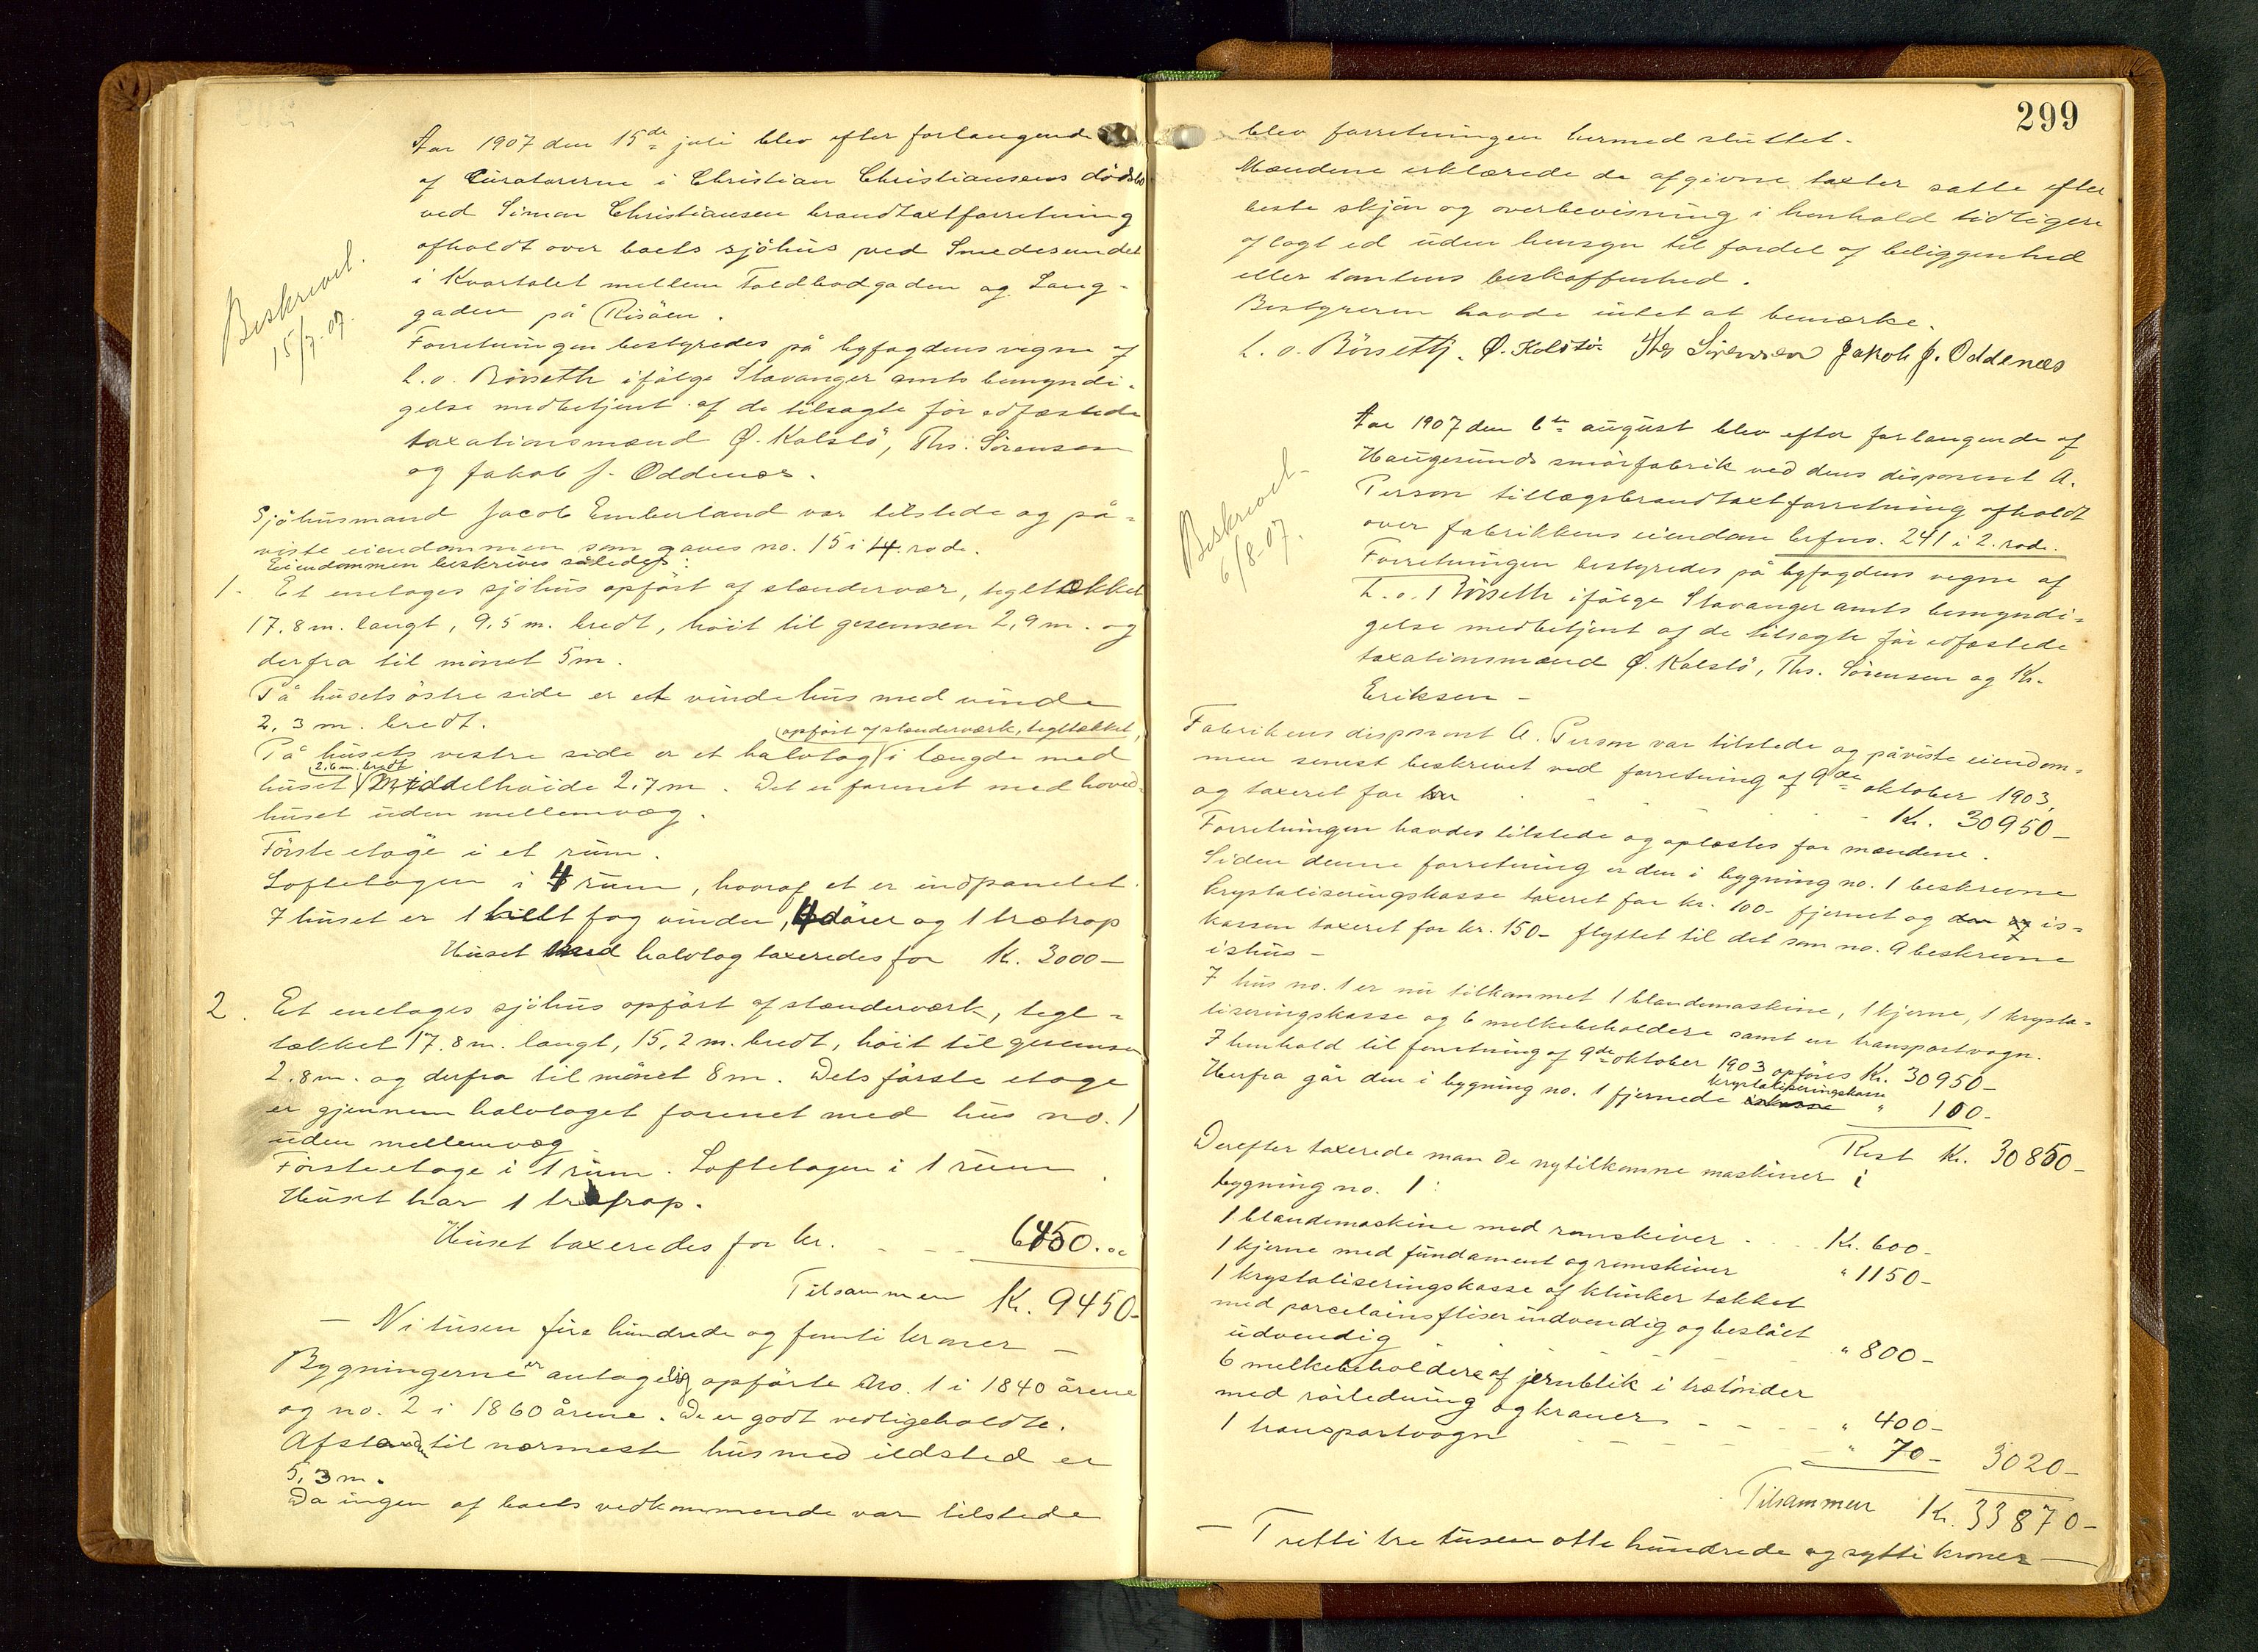 Aar 1907 den 15de juli blev efter forlangende
af Curatorerne i Christian Christiansens dødsbo
ved Simon Christiansen brandtaxtforretning
afholdt over boets sjöhus ved Smedesundet
i Kvartalet mellem Toldbodgaden og Lang-
gaden på Risöen.
Beskrevet.
15/7-07.
Forretningen bestyredes på byfogdens vegne af
L. o. Börseth ifölge Stavanger amts bemyndi-
gelse medbetjent af de tilsagte för edfæstede
taxationsmænd Ø. Kolstö, Ths. Sörensen
og Jakob J. Oddenæs.
Sjöhusmand Jacob Emberland var tilstede og på-
viste eiendommen som gaves no. 15 i 4. rode.
Eiendommen beskrives således:
1. Et enetages sjöhus opfört af stænderver, tegltækket
17,8 m. langt, 9,5 m. bredt, höit til gesemsen 2,9 m. og
derfra til mönet 5 m.
På husets östre side er et vindehus med vinde
2,3 m. bredt.
(opfört af stænderværk, tegltækket,
På husets vestre side er et halvtag i længde med
2.6 m. bredt
huset Middelhöide 2,7 m. Det er forenet med hoved-
huset uden mellemvæg.
Förste etage i et rum.
Loftetagen i 4 rum, hvoraf et er indpanelet.
I huset er 1 helt fag vinduer, 4 dörer og 1 trætrap
Huset med halvtag taxeredes for K. 3000-
2. Et enetages sjöhus opfört af stænderværk, tegl-
tækket 17.8 m. langt, 15,2 m. bredt, höit til gesemsen
2.8 m. og derfra til mönet 8 m. Dets förste etage
er gjennem halvtaget forenet med hus no. 1
uden mellemvæg
Förste etage i 1 rum. Loftetagen i 1 rum
Huset har 1 trætrap.
Huset taxeredes for kr. - - - 6450.00
Tilsammen Kr. 9450-
- Nitusen fire hundrede og femti kroner -
Bygningerne er antagelig opförte No. 1 i 1840 årene
og no. 2 i 1860 årene. De er godt vedligeholdte.
Afstanden til nærmeste hus med ildsted er
5,3 m.
Da ingen af boets vedkommende var tilstede
299
blev forretningen hermed sluttet.
Mændene erklærede de afgivne taxter satte efter
beste skjön og overbevisning i henhold tidligere
aflagt ed uden hensyn til fordel af beliggenhed
eller tomtens beskaffenhed.
Bestyreren havde intet at bemærke.
L. o. Börseth. Ø. Kolstö Ths Sörensen Jakob J. Oddenæs
Aar 1907 den 6te august blev efter forlangende af
Haugesunds smörfabrik ved dens disponent A.
Person tillægsbrandtaxtforretning afholdt
over fabrikkens eiendom brfno. 241 i 2. rode.
Beskrevet.
6/8-07.
Forretningen bestyredes på byfogdens vegne af
L. o. Börseth ifölge Stavanger amts bemyndi-
gelse medbetjent af de tilsagte för edfæstede
taxationsmænd Ø. Kolstö, Ths. Sörensen og Kr.
Eriksen -
Fabrikens disponent A. Person var tilstede og påviste eiendom-
men senest beskrevet ved forretning af 9de oktober 1903,
og taxeret for kr . . . Kr. 30950-
Forretningen havdes tilstede og oplæstes for mændene.
Siden denne forretning er den i bygning no. 1 beskrevne
krystaliseringskasse taxeret for kr. 100- fjernet og den af is-
kassen taxeret for kr. 150- flyttet til det som no. 9 beskrevne
ishus -
I hus no. 1 er nu tilkommet 1 blandemaskine, 1 kjerne, 1 krysta-
liseringskasse og 6 melkebeholdere samt en transportvogn.
I henhold til forretning af 9de oktober 1903 opföres Kr. 30950-
krystaliseringskasse
Herfra går den i bygning no. 1 fjernede iskasse " 100-
Rest Kr. 30850-
Derefter taxerede man de nytilkomne maskiner i
bygning no. 1:
1 blandemaskine med remskiver - - - Kr. 600-
1 kjerne med fundament og remskiver " 1150-
1 krystaliseringskasse af klinker tækket
med porcelainsfliser indvendig og beslåét
udvendig - - - " 800-
6 melkebeholdere af jernblik i trætönder
med rörledning og kraner - - - " 400-
1 transportvogn - - - " 70- 3020-
Tilsammen Kr. 33870-
- Tretti tre tusen otte hundrede og sytti kroner -